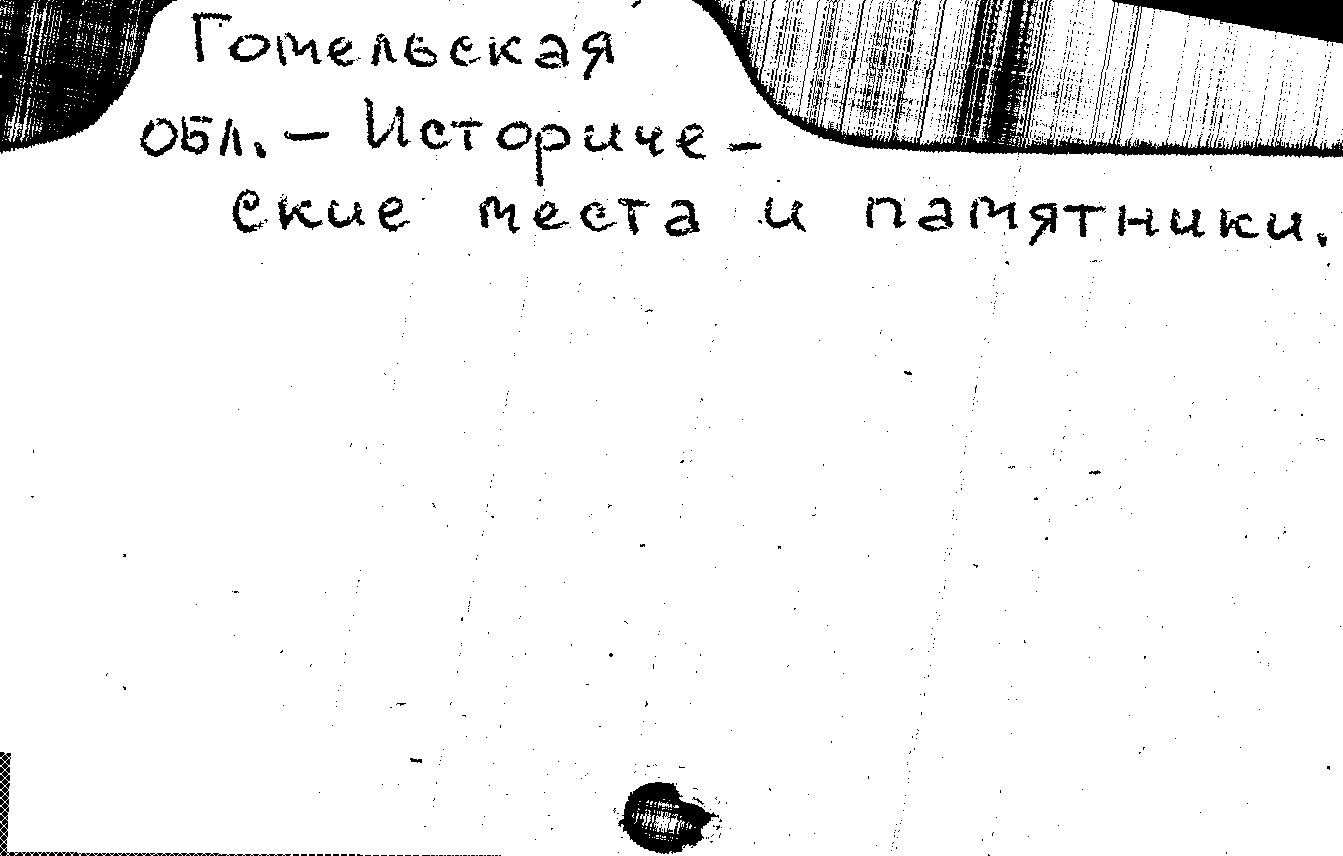 Гомельская
обл. – Историче-
ские места и памятники.